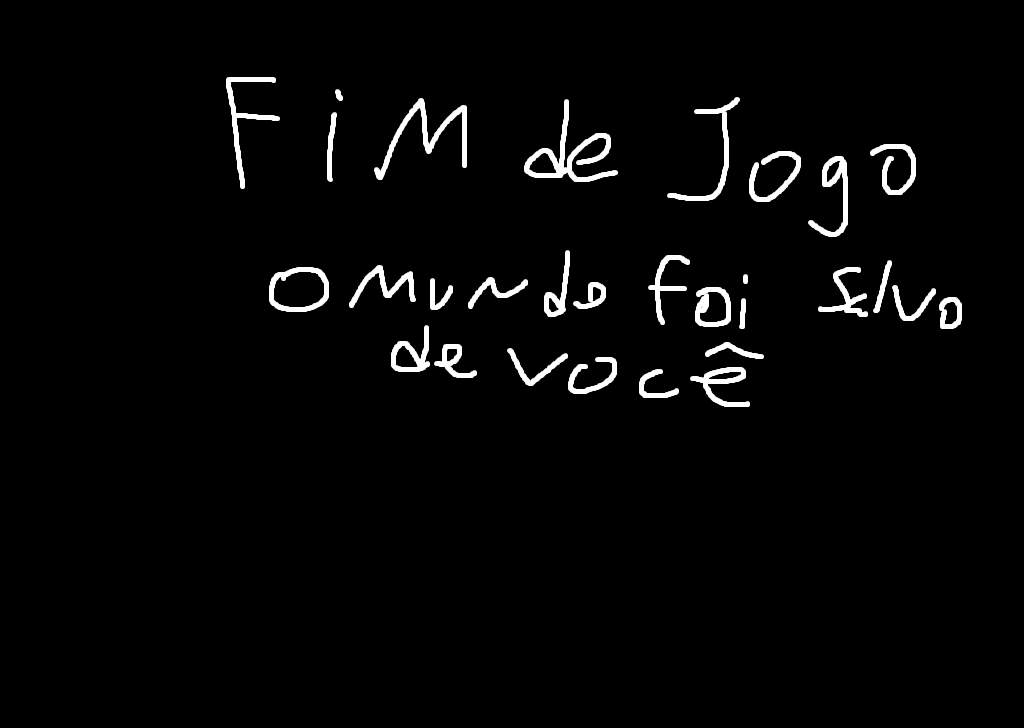 FiM de Jogo
o mundo foi salvo
de você